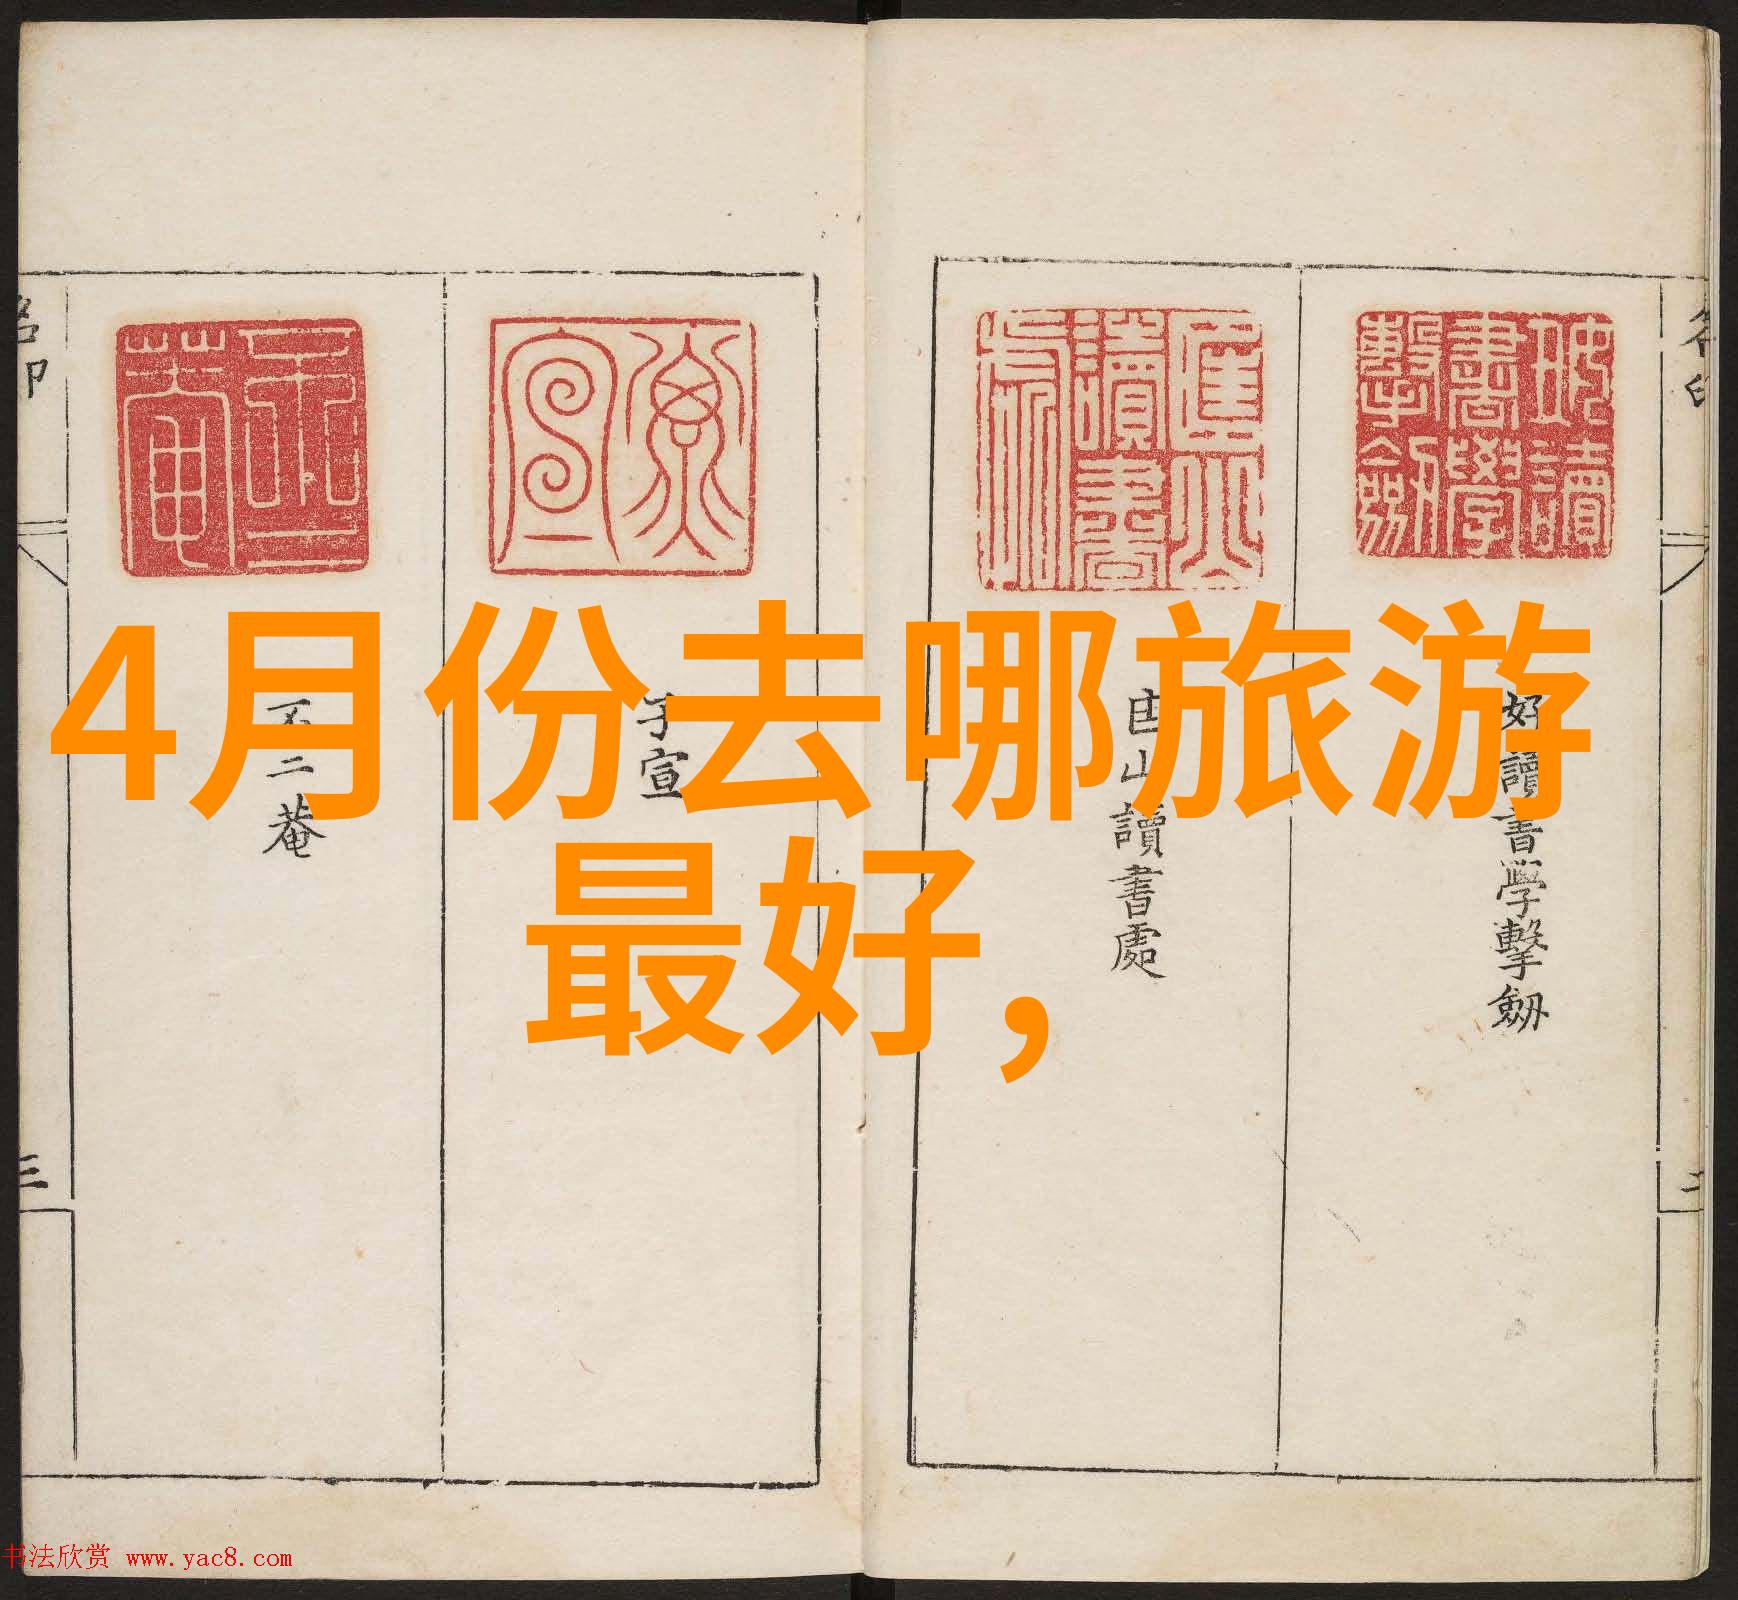 4月份去哪旅游
最好,
好讀書學擊劒
匡山讀書處
子宣
不二菴
名印
三
书法欣赏 www.yac8.com